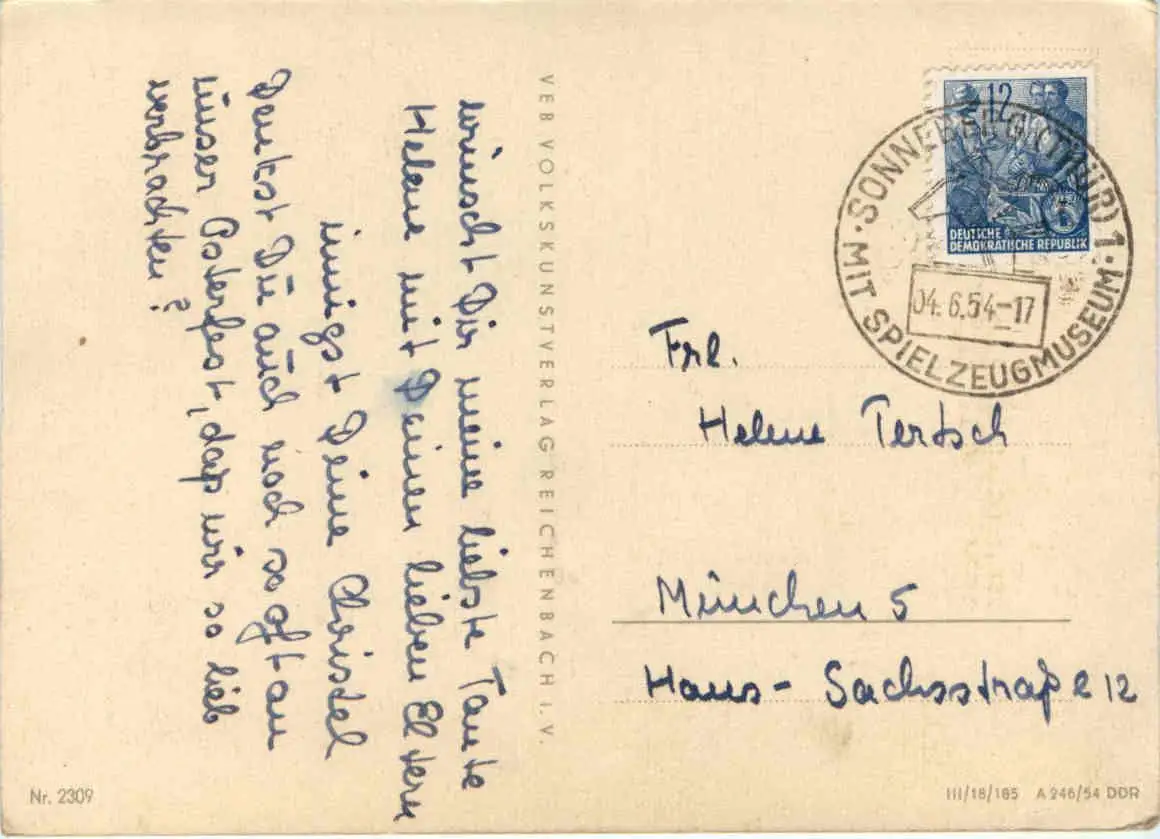 wünscht Dir meine liebste Tante
Helene mit Deinen lieben Eltern
innigst Deine Christel
Denkst Du auch noch so oft an
unser Osterfest, daß wir so lieb
verbrachten?
VEB VOLKSKUNSTVERLAG REICHENBACH I. V.
12
DEUTSCHE
DEMOKRATISCHE REPUBLIK
· SONNEBERG (THÜR) 1 ·
MIT SPIELZEUGMUSEUM
04. 6.54-17
Frl.
Helene Tertsch
München 5
Hans-Sachsstraße 12
Nr. 2309
III/18/185 A 246/54 DDR